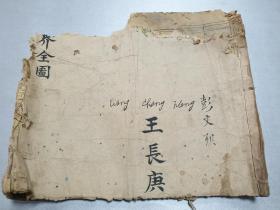 界全圖
Wong Chang Kang
彭文
王長庚